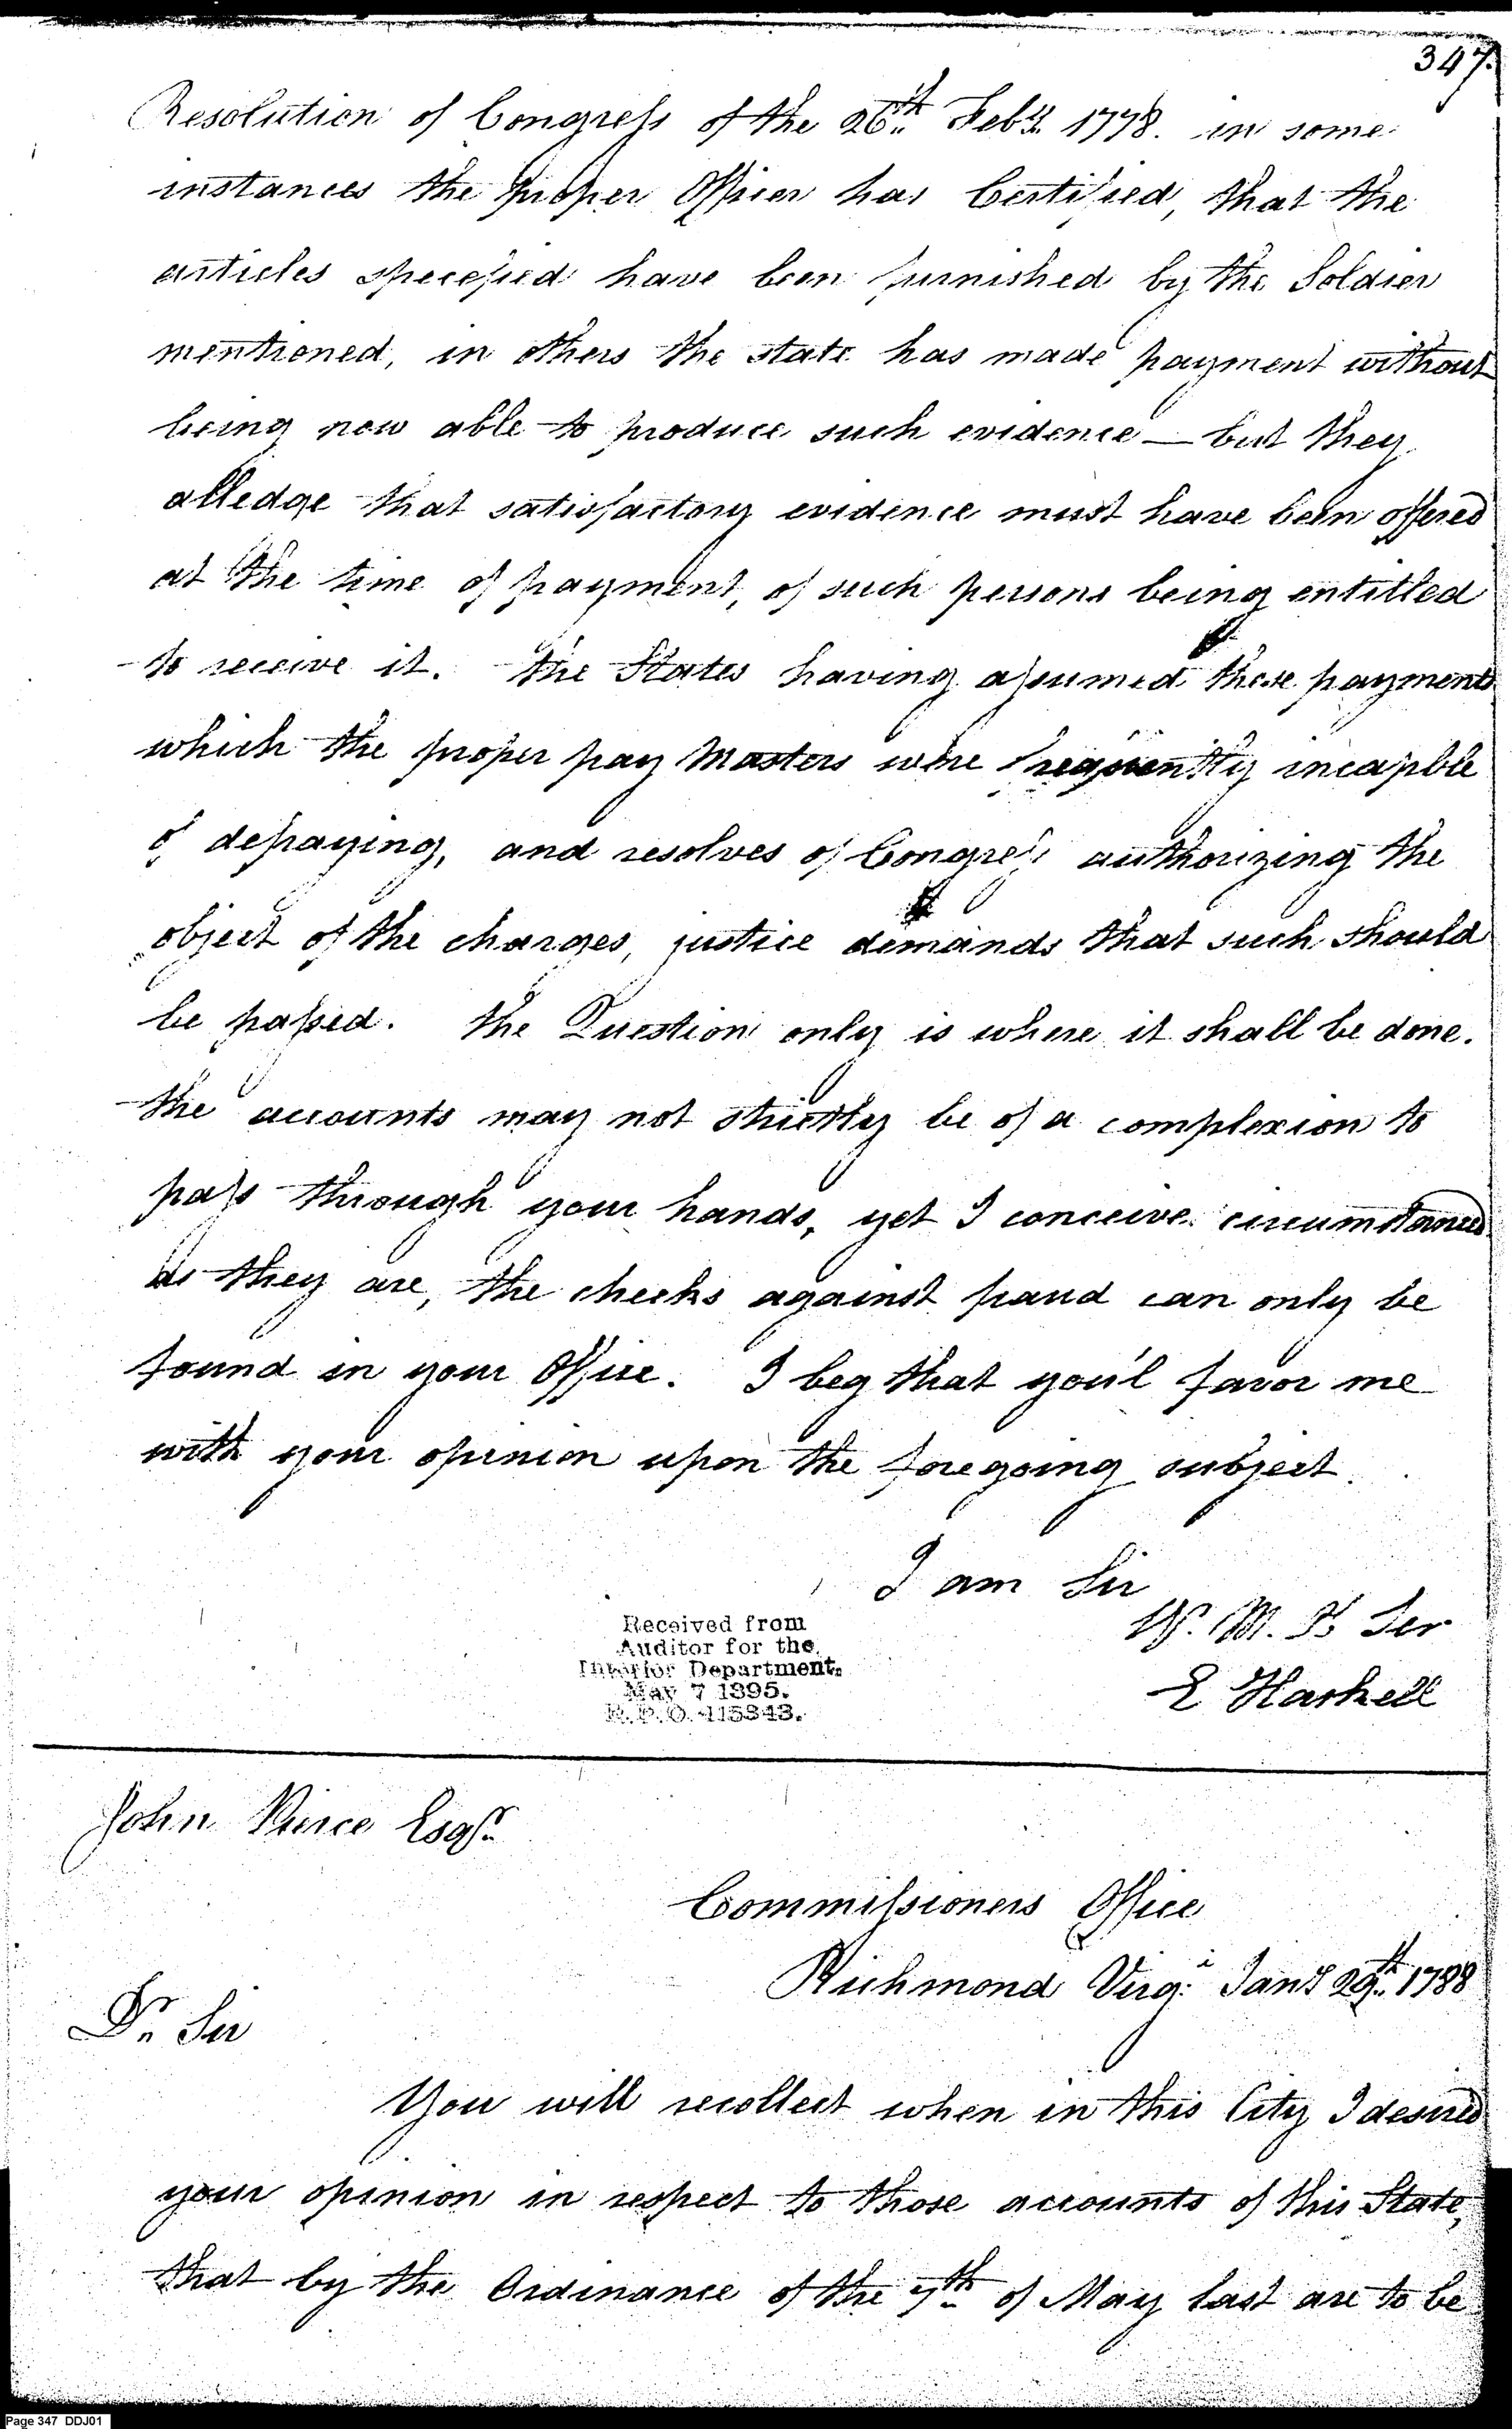 347.
Resolution of Congress of the 26th Feby. 1778. in some
instances the proper Officer has Certified, that the
articles specefied have been furnished by the Soldier
mentioned, in others the state has made payment without
being now able to produce such evidence — but they
alledge that satisfactory evidence must have been offered
at the time of payment, of such persons being entitled
to receive it. the States having assumed these payments
which the proper pay Masters were frequently incapble
of defraying, and resolves of Congress authorizing the
object of the charges, justice demands that such should
be passed. the Question only is where it shall be done.
the accounts may not strictly be of a complexion to
pass through your hands, yet I conceive circumstanced
as they are, the checks against fraud can only be
found in your Office. I beg that you'l favor me
with your opinion upon the foregoing subject.
I am Sir
Yr. M. H Ser
E Haskell
Received from
Auditor for the
Interior Department.
May 7 1895.
R. P. O. 415343.
John Pierce Esqr.
Commissioners Office
Richmond Virga. Jany 29th. 1788
Dr. Sir
You will recollect when in this City I desired
your opinion in respect to those accounts of this State,
that by the Ordinance of the 7th of May last are to be
Page 347 DDJ01